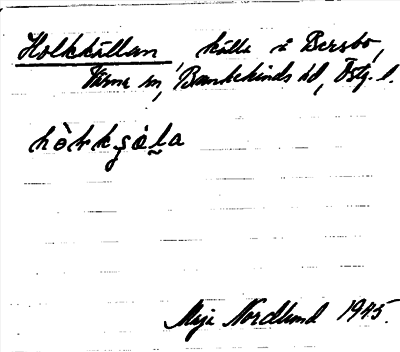 Holkkällan, källa i Bersbo,
Värna sn, Bankekinds hd, Östg. l.
Maja Nordlund 1945.